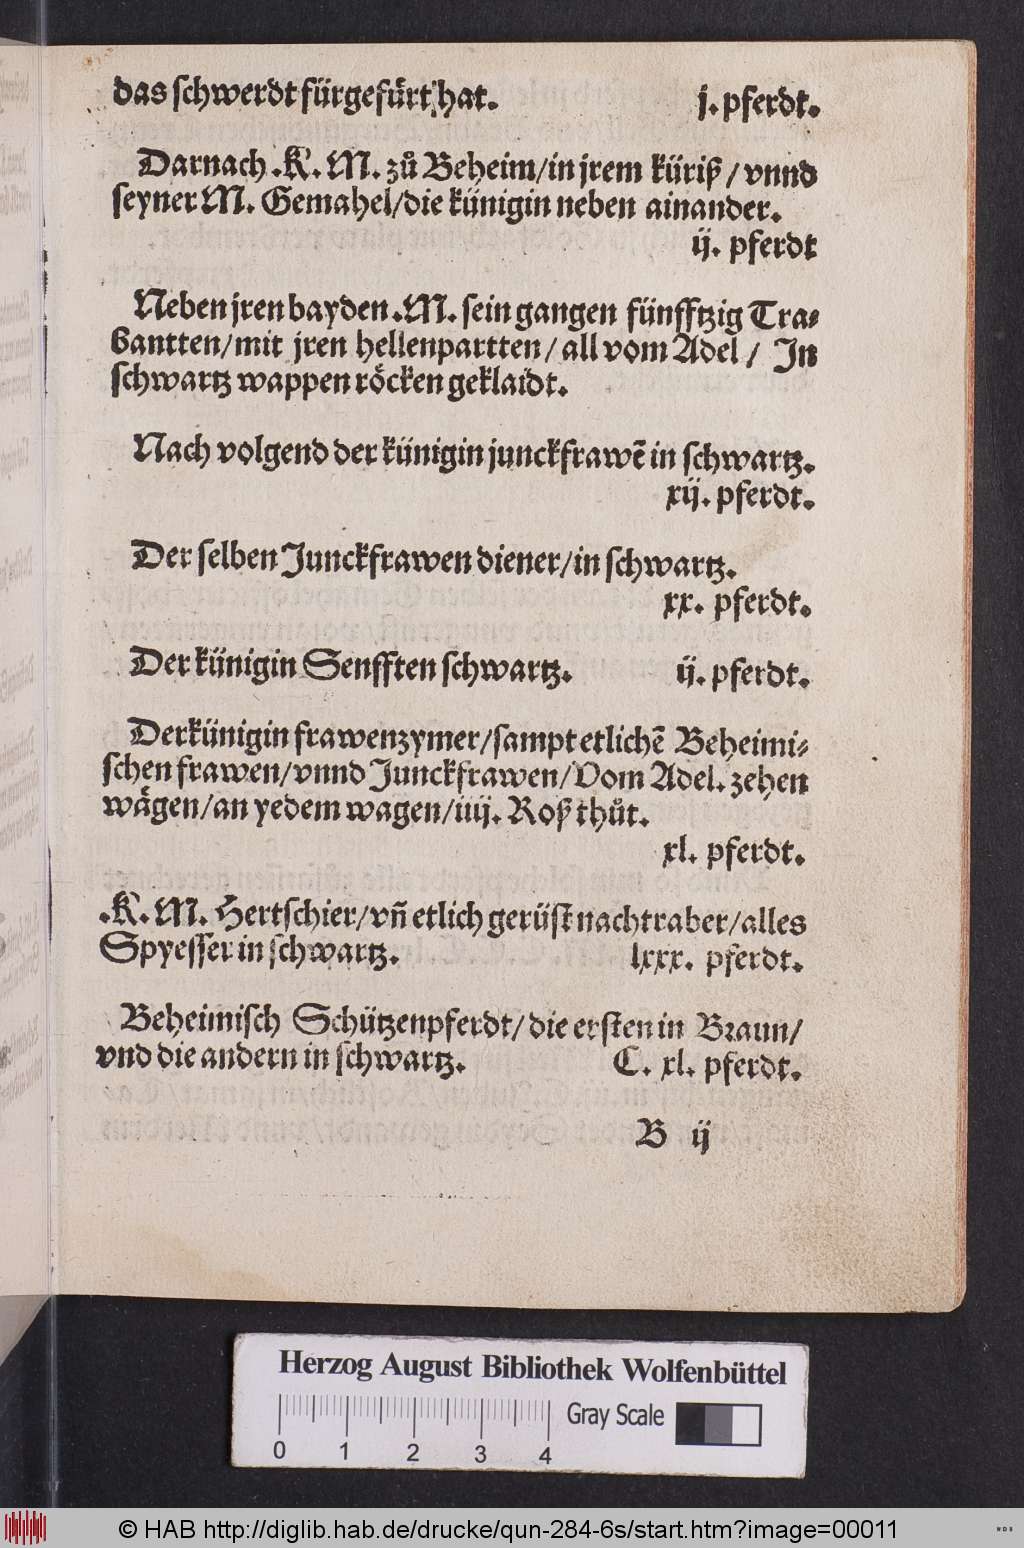 das schwerdt fürgefuͤrt hat. j. pferdt.
Darnach .K. M. zuͦ Beheim/in jrem küriß/ vnnd
seyner M. Gemahel/die künigin neben ainander.
ij. pferdt
Neben jren bayden .M. sein gangen fünfftzig Tra⸗
bantten/mit jren hellenpartten/ all vom Adel/ In
schwartz wappen roͤcken geklaidt.
Nach volgend der künigin junckfrawẽ in schwartz.
xij. pferdt.
Der selben Junckfrawen diener/in schwartz.
xx. pferdt.
Der künigin Senfften schwartz. ij. pferdt.
Der künigin frawenzymer/sampt etlichẽ Beheimi⸗
schen frawen/vnnd Junckfrawen/Vom Adel. zehen
waͤgen/an yedem wagen/iiij. Roß thuͦt.
xl. pferdt.
.K. M. Hertschier/vñ etlich gerüst nachtraber/alles
Spyesser in schwartz. lxxx. pferdt.
Beheimisch Schützenpferdt/ die ersten in Braun/
vnd die andern in schwartz. C. xl. pferdt.
B ij
Herzog August Bibliothek Wolfenbüttel
Gray Scale
0 1 2 3 4
© HAB http://diglib.hab.de/drucke/qun-284-6s/start.htm?image=00011